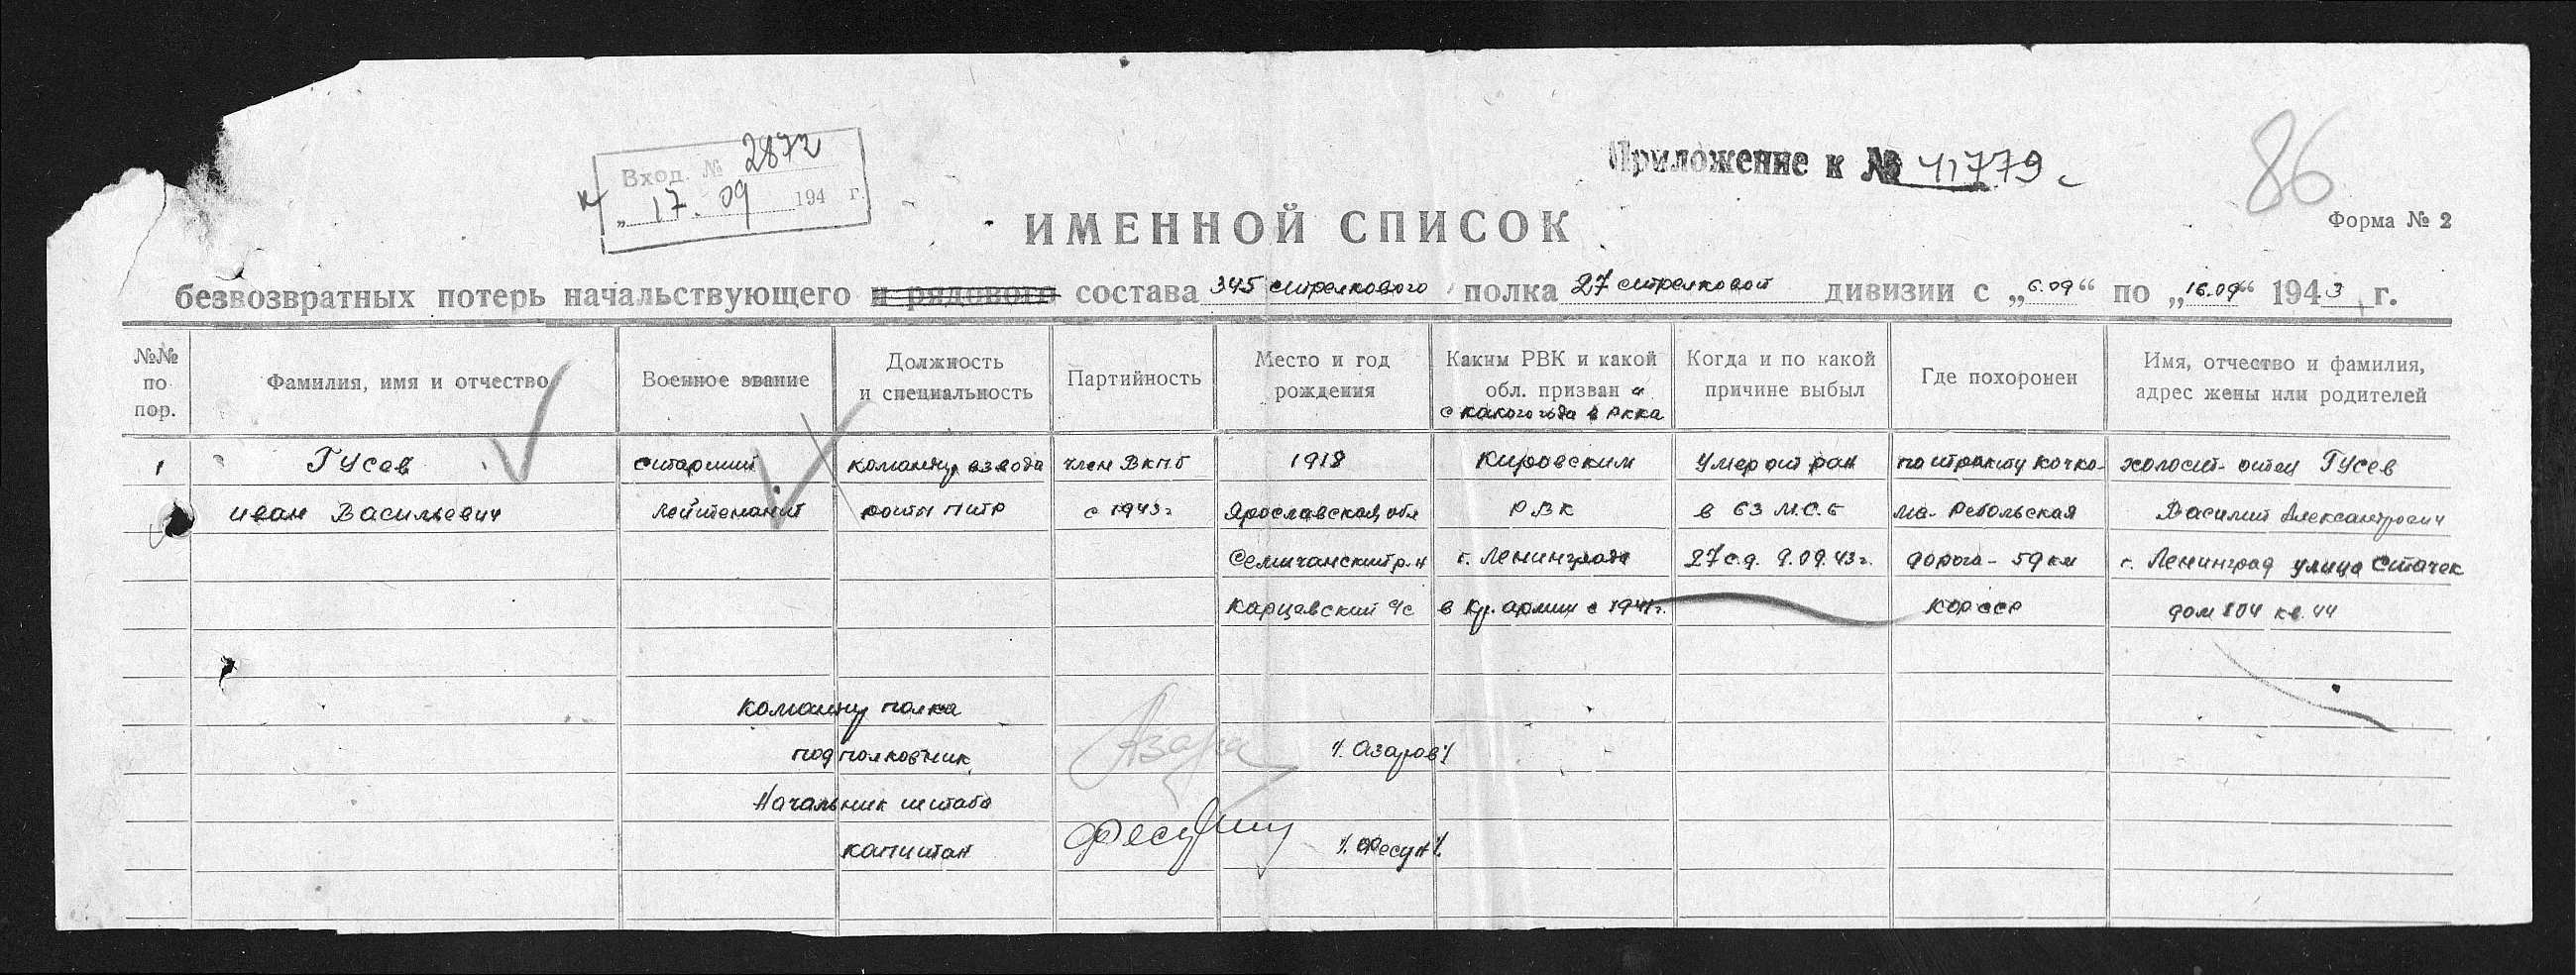 Вход. № 2872
„ 17. 09 194 г.
Приложение к № 41779 с
86
Форма № 2
ИМЕННОЙ СПИСОК
безвозвратных потерь начальствующего и рядового состава 345 стрелкового полка 27 стрелковой дивизии с „6.09“ по „16.09“ 1943 г.
№№ по пор.
Фамилия, имя и отчество
Военное звание
Должность и специальность
Партийность
Место и год рождения
Каким РВК и какой обл. призван и с какого года в РККА
Когда и по какой причине выбыл
Где похоронен
Имя, отчество и фамилия, адрес жены или родителей
1 Гусев старший командир взвода член ВКПб 1918 Кировским Умер от ран по тракту Кочко- холост- отец Гусев
Иван Васильевич лейтенант роты ПТР с 1943г Ярославская обл РВК в 63 М.С.Б ма- Ребольская Василий Александрович
Семичанский р-н г. Ленинграда 27 с.д. 9.09.43г. дорога- 59 км г. Ленинград улица Стачек
Карцевский с/с в Кр. армии с 1941г. КФССР дом 104 кв. 44
Команд полка
подполковник Азаро /. Азаров /
Начальник штаба
капитан Фесун /. Фесун /.